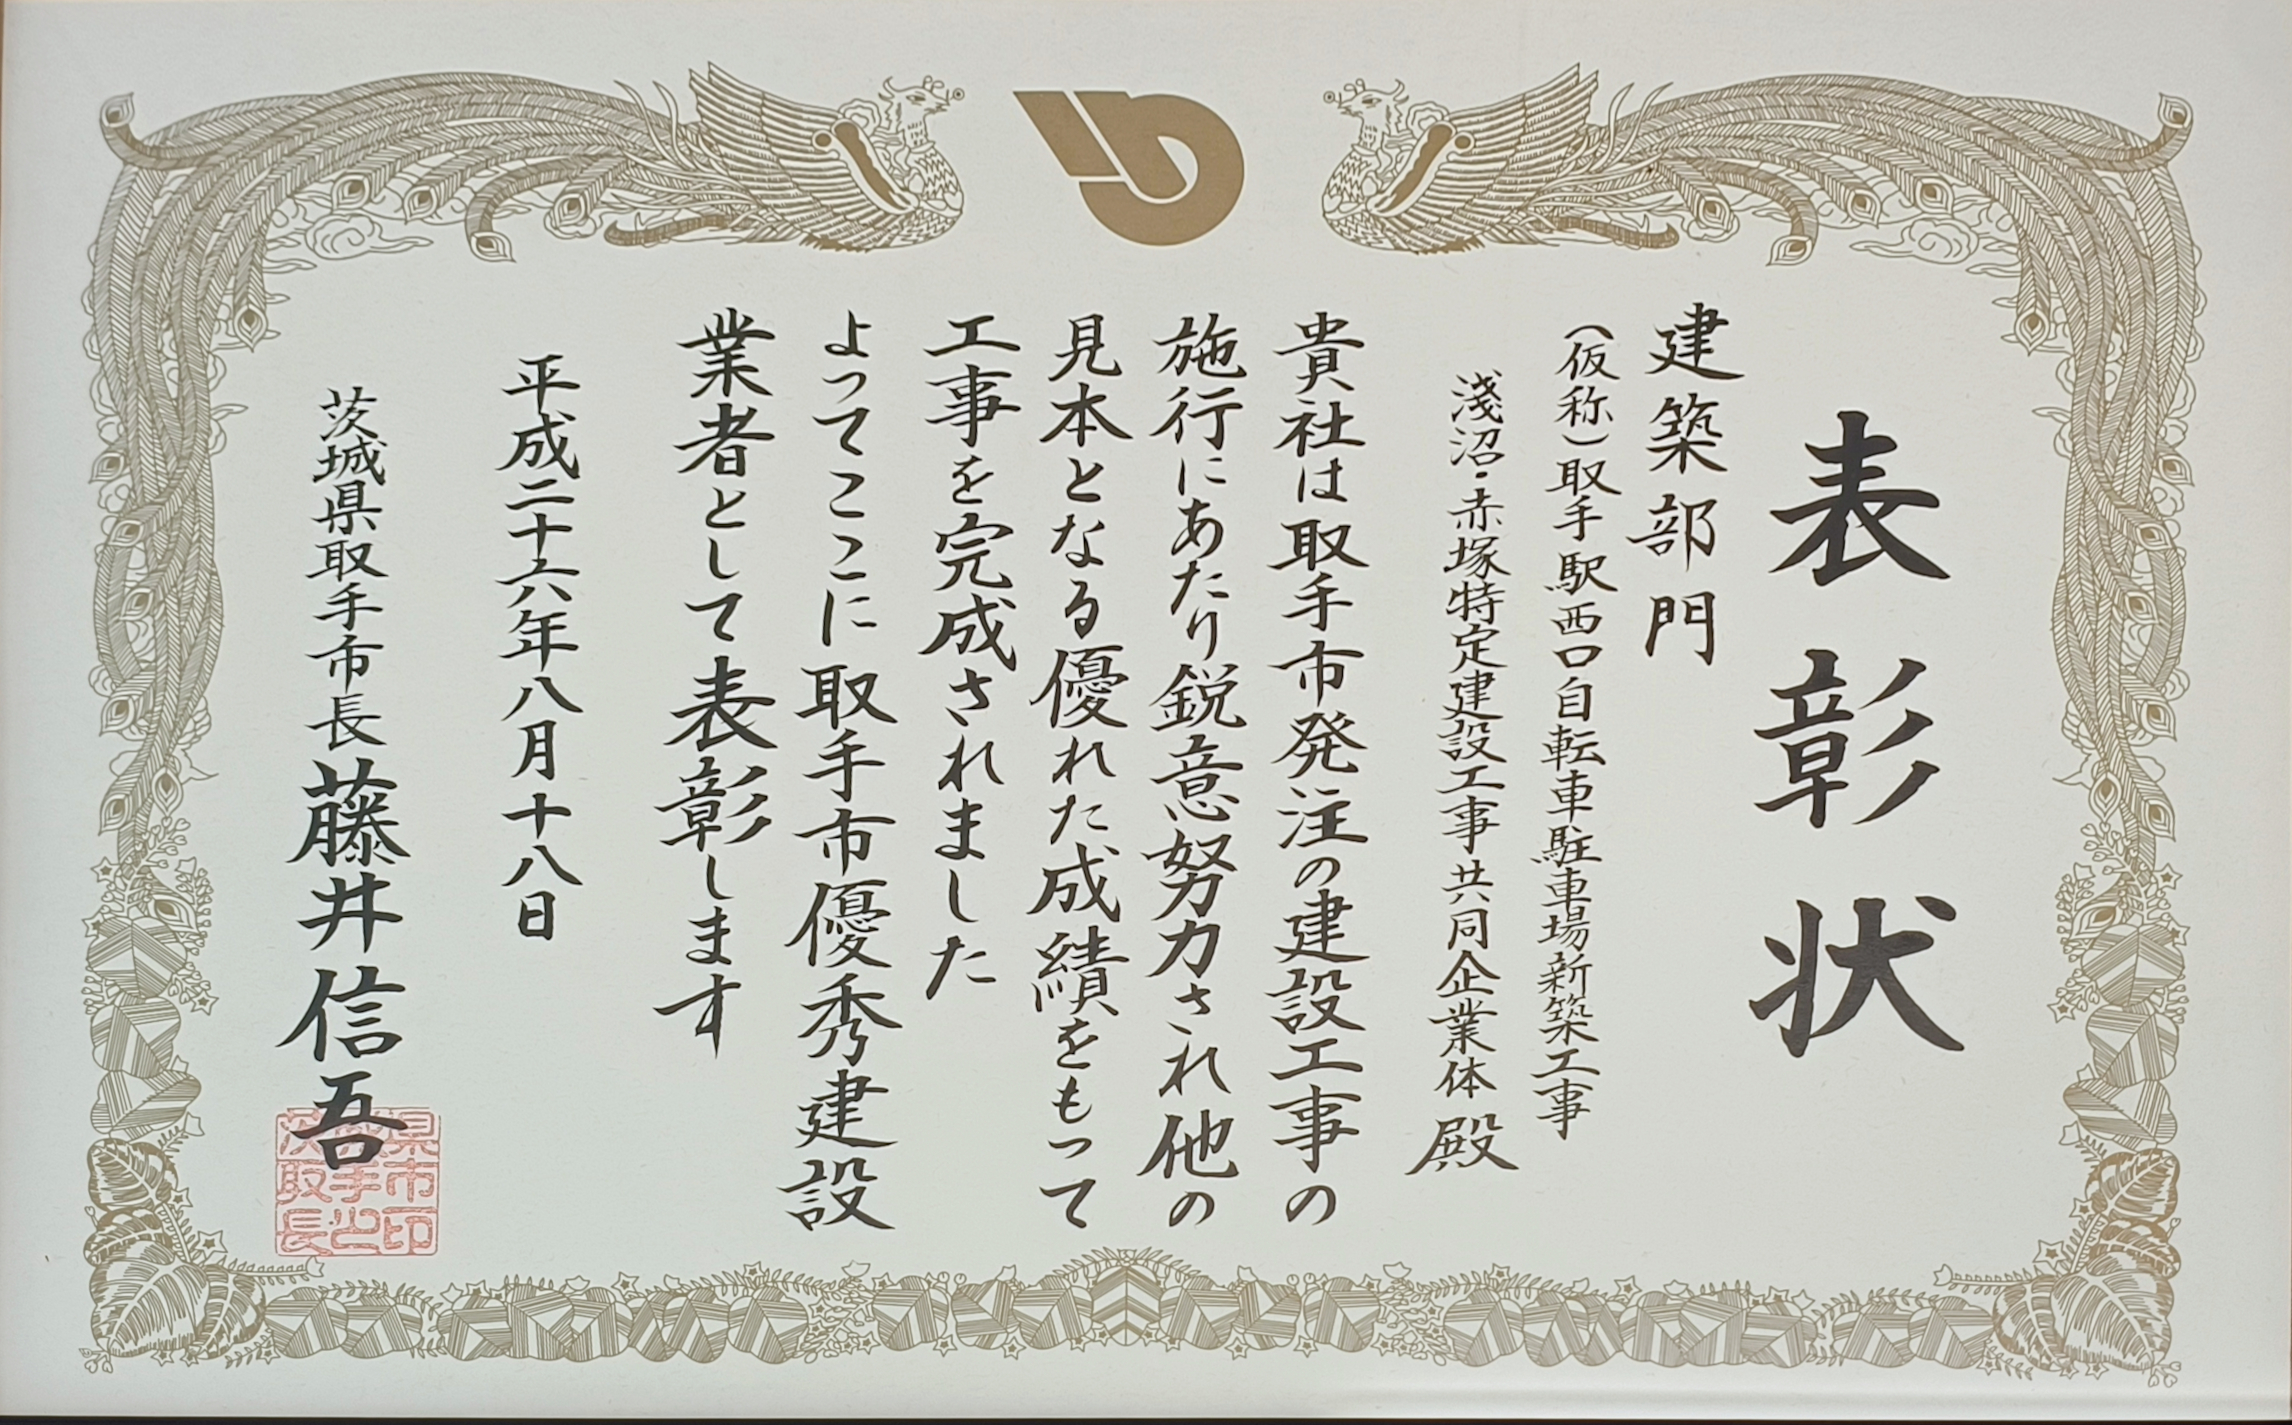 表彰状
建築部門
（仮称）取手駅西口自転車駐車場新築工事
淺沼・赤塚特定建設工事共同企業体 殿
貴社は取手市発注の建設工事の
施行にあたり鋭意努力され他の
見本となる優れた成績をもって
工事を完成されました
よってここに取手市優秀建設
業者として表彰します
平成二十六年八月十八日
茨城県取手市長 藤井信吾
茨城県
取手市
長之印